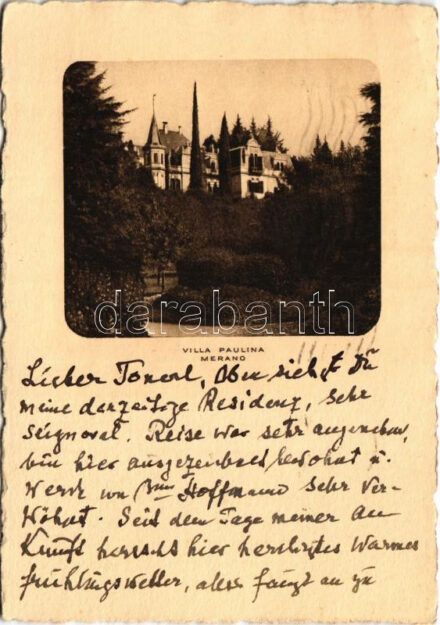 darabanth
VILLA PAULINA
MERANO
Lieber Tonerl, Oben siehst Du
meine derzeitige Residenz, sehr
Reise war sehr angenehm,
bin hier ausgezeichnet bewohnt u.
werde von Hoffmann sehr ver-
wöhnt. Seit dem Tage meiner An
kunft herrscht hier herrlichstes warmes
frühlingswetter, alles fängt an zu